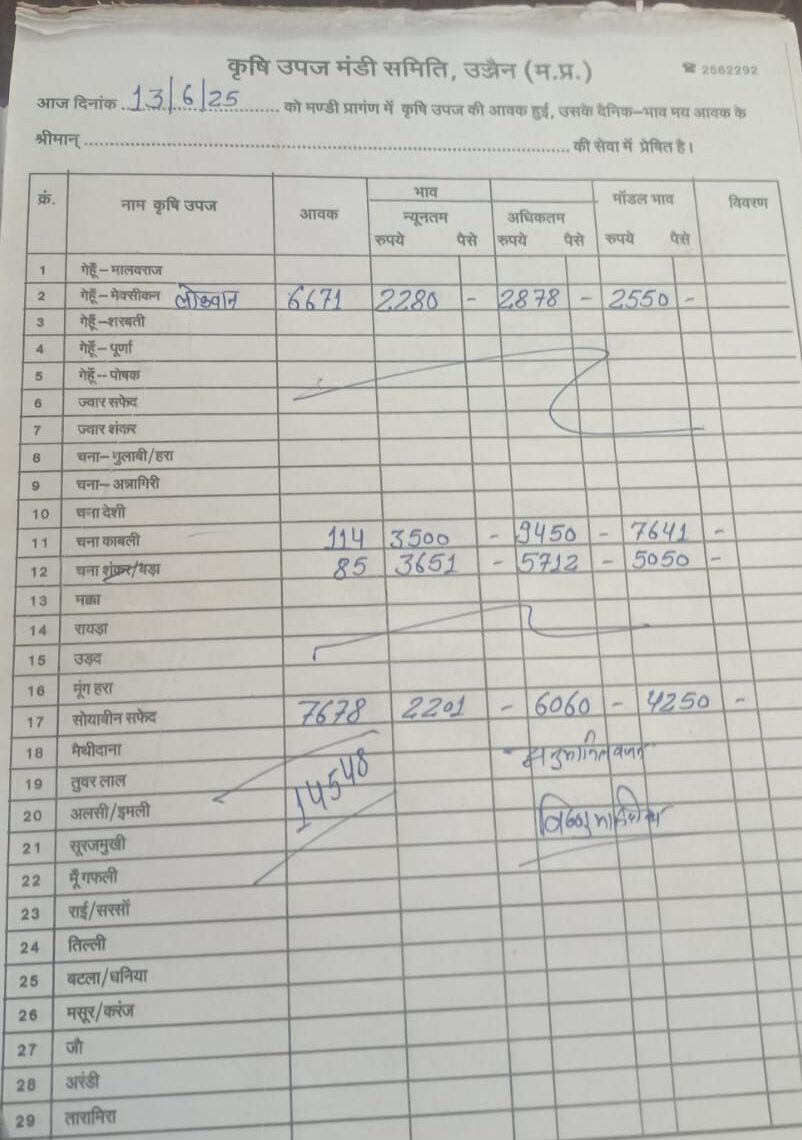 कृषि उपज मंडी समिति, उज्जैन (म.प्र.) ☎ 2562292
आज दिनांक 13/6/25 को मण्डी प्रागंण में कृषि उपज की आवक हुई, उसके दैनिक-भाव मय आवक के
श्रीमान् की सेवा में प्रेषित है।
क्रं. नाम कृषि उपज आवक भाव मॉडल भाव विवरण
न्यूनतम अधिकतम
रुपये पैसे रुपये पैसे रुपये पैसे
1 गेहूँ-मालवराज
2 गेहूँ-मेक्सीकन लोकवान 6671 2280 - 2878 - 2550 -
3 गेहूँ-शरबती
4 गेहूँ-पूर्णा
5 गेहूँ-पोषक
6 ज्वार सफेद
7 ज्वार शंकर
8 चना-गुलाबी/हरा
9 चना-अन्नागिरी
10 चना देशी
11 चना काबली 114 3500 - 9450 - 7641 -
12 चना शंकर/बड़ा 85 3651 - 5712 - 5050 -
13 मक्का
14 रायड़ा
15 उड़द
16 मूंग हरा
17 सोयाबीन सफेद 7678 2201 - 6060 - 4250 -
18 मैथीदाना
19 तुवर लाल
20 अलसी/इमली 14548
21 सूरजमुखी
22 मूँगफली
23 राई/सरसों
24 तिल्ली
25 बटला/धनिया
26 मसूर/करंज
27 जौ
28 अरंडी
29 तारामिरा